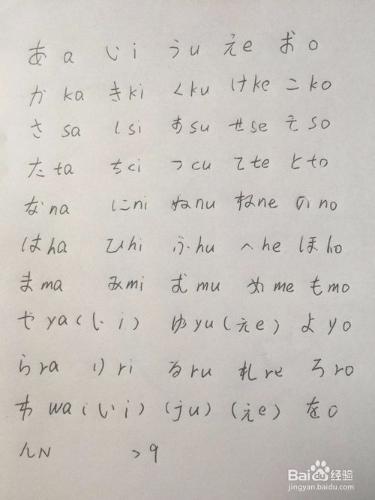 あ a い i う u え e お o
か ka き ki く ku け ke こ ko
さ sa し si す su せ se そ so
た ta ち ci つ cu て te と to
な na に ni ぬ nu ね ne の no
は ha ひ hi ふ hu へ he ほ ho
ま ma み mi む mu め me も mo
や ya (い i) ゆ yu (え e) よ yo
ら ra り ri る ru れ re ろ ro
わ wa (い i) (ju) (え e) を o
ん N っ q
Bai du 经验
jingyan.baidu.com